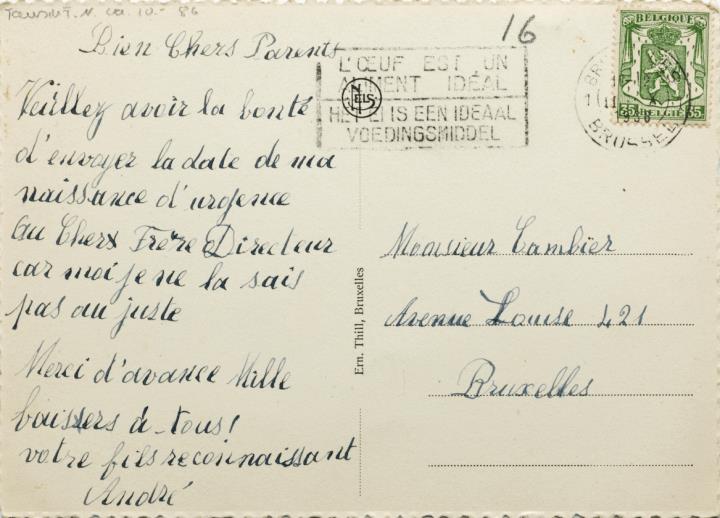 Bien Chers Parents
Veuillez avoir la bonté
d'envoyer la date de ma
naissance d'urgence
au Cherx Frère Directeur
car moi je ne la sais
pas au juste
Merci d'avance Mille
baisers à tous!
votre fils reconnaissant
André
16
L'ŒUF EST UN
ALIMENT IDÉAL
HET EI IS EEN IDEAAL
VOEDINGSMIDDEL
NELS
BELGIQUE
35 BELGIË 35
BRUSSEL
Ern. Thill, Bruxelles
Monsieur Cambier
Avenue Louise 421
Bruxelles